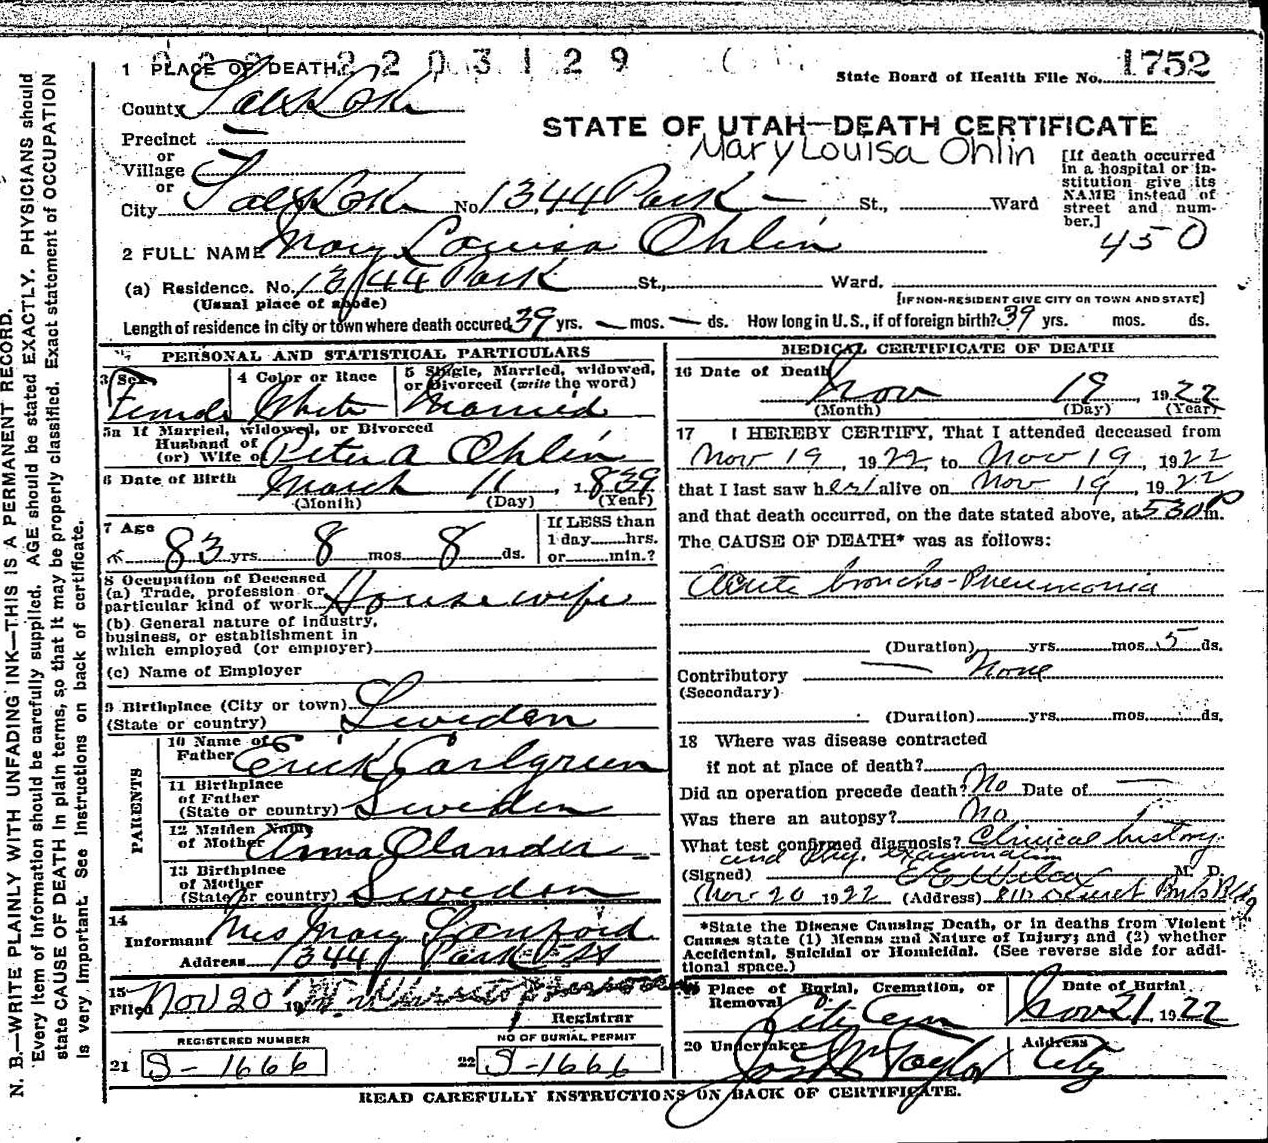 009 2203129
1 PLACE OF DEATH
State Board of Health File No. 1752
County Salt Lake
STATE OF UTAH—DEATH CERTIFICATE
Precinct —
Mary Louisa Ohlin
or
Village —
or
City Salt Lake No. 1344 Park — St., Ward
[If death occurred
in a hospital or in-
stitution give its
NAME instead of
street and num-
ber.]
450
2 FULL NAME Mary Louisa Ohlin
(a) Residence. No. 1344 Park St., Ward.
(Usual place of abode)
[IF NON-RESIDENT GIVE CITY OR TOWN AND STATE]
Length of residence in city or town where death occured 39 yrs. — mos. — ds. How long in U.S., if of foreign birth? 39 yrs. mos. ds.
PERSONAL AND STATISTICAL PARTICULARS
3 Sex
Female
4 Color or Race
White
5 Single, Married, widowed,
or Divorced (write the word)
Married
5a If Married, widowed, or Divorced
Husband of
(or) Wife of Peter A Ohlin
6 Date of Birth March 11, 1839
(Month) (Day) (Year)
7 Age
83 yrs. 8 mos. 8 ds.
If LESS than
1 day hrs.
or min.?
8 Occupation of Deceased
(a) Trade, profession or
particular kind of work Housewife
(b) General nature of industry,
business, or establishment in
which employed (or employer)
(c) Name of Employer
9 Birthplace (City or town)
(State or country) Sweden
PARENTS
10 Name of
Father Erick Carlgreen
11 Birthplace
of Father
(State or country) Sweden
12 Maiden Name
of Mother Anna Olander
13 Birthplace
of Mother
(State or country) Sweden
14
Informant Mrs Mary Sanford
Address 1344 Park St
15
Filed Nov 20 19
Registrar
REGISTERED NUMBER
21 S-1666
NO OF BURIAL PERMIT
22 S-1666
MEDICAL CERTIFICATE OF DEATH
16 Date of Death
Nov 19, 1922
(Month) (Day) (Year)
17 I HEREBY CERTIFY, That I attended deceased from
Nov 19, 1922, to Nov 19, 1922
that I last saw her alive on Nov 19, 1922
and that death occurred, on the date stated above, at 530 P m.
The CAUSE OF DEATH* was as follows:
Acute broncho-Pneumonia
(Duration) yrs. mos. 5 ds.
Contributory — None
(Secondary)
(Duration) yrs. mos. ds.
18 Where was disease contracted
if not at place of death?
Did an operation precede death? No Date of —
Was there an autopsy? No
What test confirmed diagnosis? Clinical history
and Phy. examination
(Signed) E E Wilcox M. D.
Nov 20 1922 (Address) 811 Deseret Bnk Bldg
*State the Disease Causing Death, or in deaths from Violent
Causes state (1) Means and Nature of Injury; and (2) whether
Accidental, Suicidal or Homicidal. (See reverse side for addi-
tional space.)
19 Place of Burial, Cremation, or
Removal
City Cem
Date of Burial
Nov 21, 1922
20 Undertaker
Jos Wm Taylor
Address
City
READ CAREFULLY INSTRUCTIONS ON BACK OF CERTIFICATE.
N. B.—WRITE PLAINLY WITH UNFADING INK—THIS IS A PERMANENT RECORD.
Every item of information should be carefully supplied. AGE should be stated EXACTLY. PHYSICIANS should
state CAUSE OF DEATH in plain terms, so that it may be properly classified. Exact statement of OCCUPATION
is very important. See Instructions on back of certificate.